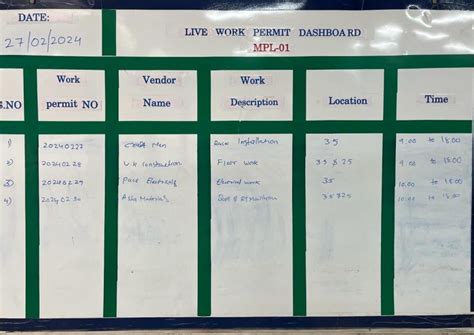 DATE:
27/02/2024
LIVE WORK PERMIT DASHBOARD
MPL-01
S.NO
Work permit NO
Vendor Name
Work Description
Location
Time
1) 20240227 Men Installation 35 9.00 to 18.00
2) 20240228 V.K Construction Floor work 33 & 25 9.00 to 18.00
3) 20240229 Pace Electricals Electrical work 35 10.00 to 18.00
4) 20240230 10:00 to 18.00